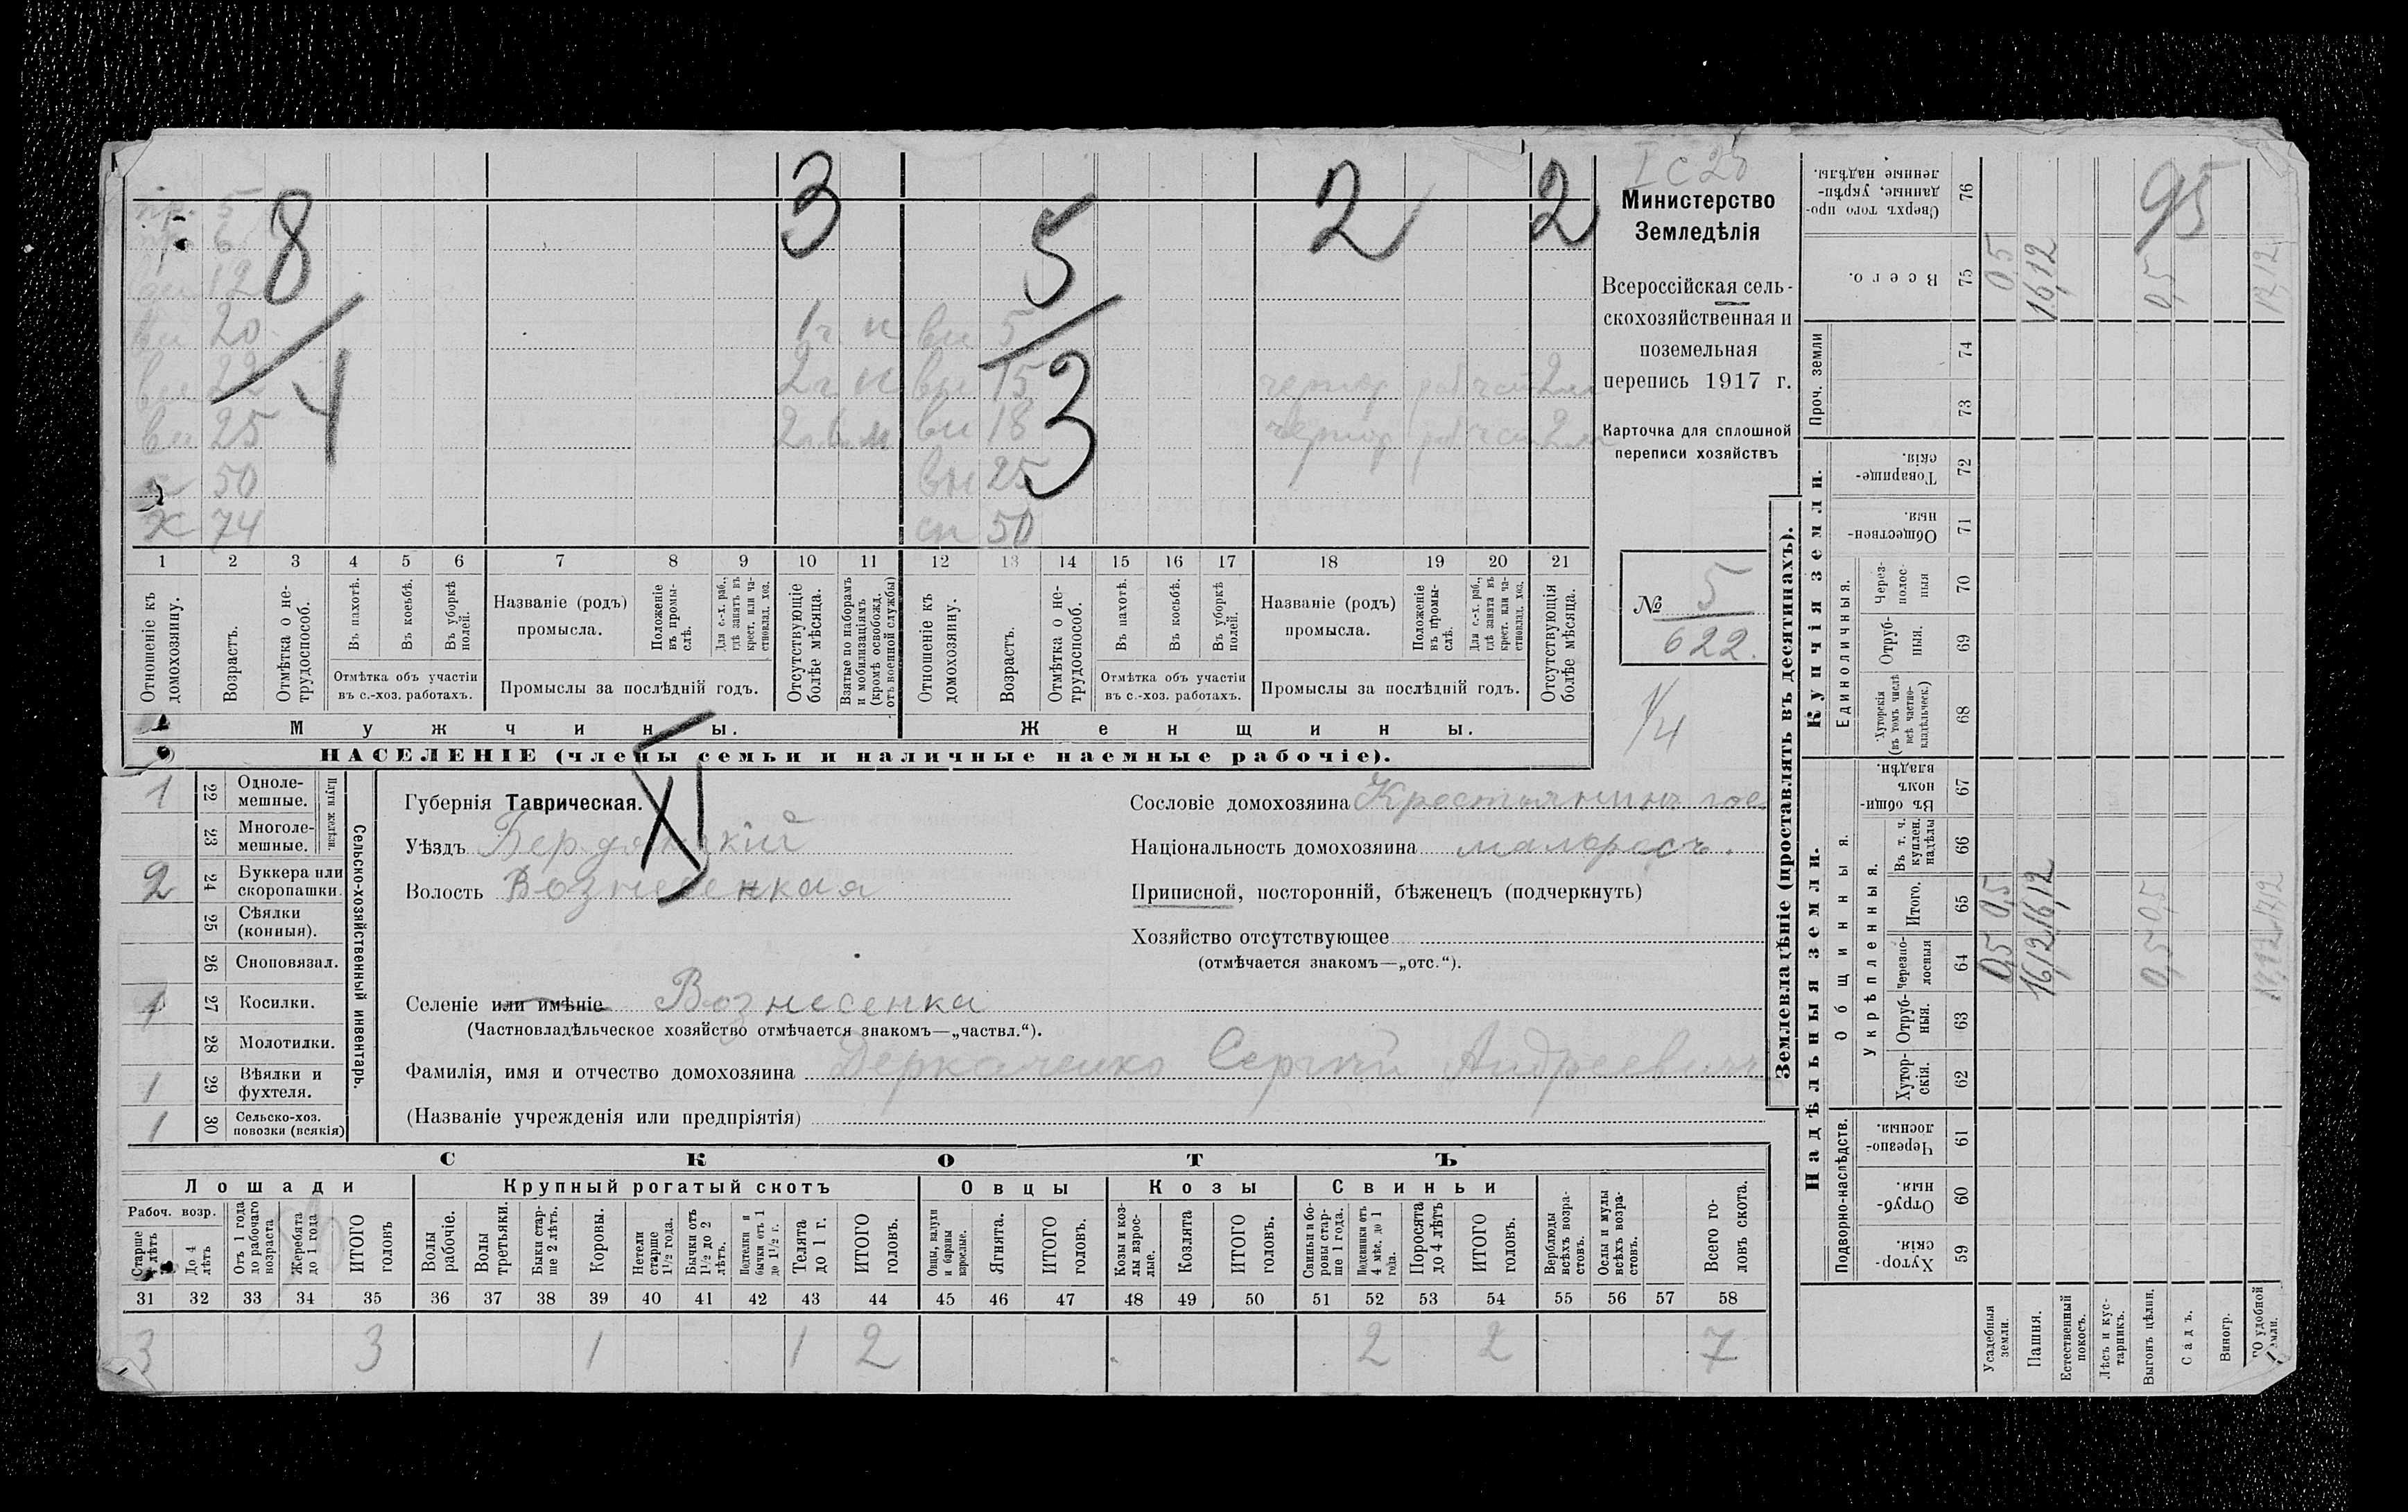 І С 25
8
3
5
2
2
пр. 5
пр. 6
вн 12
вн 20 1 г. н вн 5
вн 22 2 г. н вн 15 чернор раб част 2 м
вн 25 вн 18 чернор раб част 2 м
с 50 вн 25
х 74 сн 50
4
3
1 2 3 4 5 6 7 8 9 10 11 12 13 14 15 16 17 18 19 20 21
Отношеніе къ домохозяину.
Возрастъ.
Отмѣтка о нетрудоспособ.
Въ пахотѣ.
Въ косьбѣ.
Въ уборкѣ полей.
Отмѣтка объ участіи въ с.-хоз. работахъ.
Названіе (родъ) промысла.
Положеніе въ промыслѣ.
Для с.-х. раб., гдѣ занятъ въ крест. или частновлад. хоз.
Промыслы за послѣдній годъ.
Отсутствующіе болѣе мѣсяца.
Взятые по наборамъ и мобилизаціямъ (кромѣ освобожд. отъ военной службы)
Отношеніе къ домохозяину.
Возрастъ.
Отмѣтка о нетрудоспособ.
Въ пахотѣ.
Въ косьбѣ.
Въ уборкѣ полей.
Отмѣтка объ участіи въ с.-хоз. работахъ.
Названіе (родъ) промысла.
Положеніе въ промыслѣ.
Для с.-х. раб., гдѣ занята въ крест. или частновлад. хоз.
Промыслы за послѣдній годъ.
Отсутствующія болѣе мѣсяца.
Мужчины.
Женщины.
НАСЕЛЕНІЕ (члены семьи и наличные наемные рабочіе).
Министерство
Земледѣлія
Всероссійская сель-
скохозяйственная и
поземельная
перепись 1917 г.
Карточка для сплошной
переписи хозяйствъ
№ 5
622.
1/4
XI
1 22 Однолемешные.
23 Многолемешные.
Плуги желѣзн.
2 24 Буккера или скоропашки.
25 Сѣялки (конныя).
26 Сноповязал.
1 27 Косилки.
28 Молотилки.
1 29 Вѣялки и фухтеля.
1 30 Сельско-хоз. повозки (всякія)
Сельско-хозяйственный инвентарь.
Губернія Таврическая.
Уѣздъ Бердянскій
Волость Вознесенкая
Селеніе или имѣніе Вознесенка
(Частновладѣльческое хозяйство отмѣчается знакомъ—„частвл.“).
Фамилія, имя и отчество домохозяина Деркаченко Сергѣй Андреевичъ
(Названіе учрежденія или предпріятія)
Сословіе домохозяина Крестьянинъ
Національность домохозяина малорос.
Приписной, посторонній, бѣженецъ (подчеркнуть)
Хозяйство отсутствующее
(отмѣчается знакомъ—„отс.“).
СКОТЪ
Лошади
Крупный рогатый скотъ
Овцы
Козы
Свиньи
Рабоч. возр.
Старше 4 лѣтъ
До 4 лѣтъ
Отъ 1 года до рабочаго возраста
Жеребята до 1 года
ИТОГО головъ
Волы рабочіе.
Волы третьяки.
Быки старше 2 лѣтъ.
Коровы.
Нетели старше 1½ года.
Бычки отъ 1½ до 2 лѣтъ.
Нетелки и бычки отъ 1 до 1½ г.
Телята до 1 г.
ИТОГО головъ.
Овцы, валухи и бараны взрослые.
Ягнята.
ИТОГО головъ.
Козы и козлы взрослые.
Козлята
ИТОГО головъ.
Свиньи и боровы старше 1 года.
Подсвинки отъ 4 мѣс. до 1 года.
Поросята до 4 лѣтъ
ИТОГО головъ.
Верблюды всѣхъ возрастовъ.
Ослы и мулы всѣхъ возрастовъ.
Всего головъ скота.
31 32 33 34 35 36 37 38 39 40 41 42 43 44 45 46 47 48 49 50 51 52 53 54 55 56 57 58
3 3 1 1 2 2 2 7
Землевладѣніе (проставлять въ десятинахъ).
Надѣльныя земли.
Купчія земли.
Проч. земли
Подворно-наслѣдств.
Общинныя.
Укрѣпленныя.
Единоличныя.
Сверхъ того проданные, укрѣпленные надѣлы. 76
Всего. 75
74
73
Товарищескія. 72
Общественныя. 71
Черезполосныя 70
Отрубныя. 69
Хуторскія (въ томъ числѣ всѣ частновладѣльческ.) 68
Въ общинномъ владѣн. 67
Въ т. ч. куплен. надѣлы 66
Итого. 65
Черезполосныя 64
Отрубныя. 63
Хуторскія. 62
Черезполосныя. 61
Отрубныя. 60
Хуторскія. 59
Усадебныя земли. 0,5 0,5 0,5
Пашня. 16,12 16,12 16,12
Естественный покосъ.
Лѣсъ и кустарникъ.
Выгонъ цѣлин. 0,5 0,5 0,5
Садъ.
Виногр.
удобной земли. 17,12 17,12 17,12
95